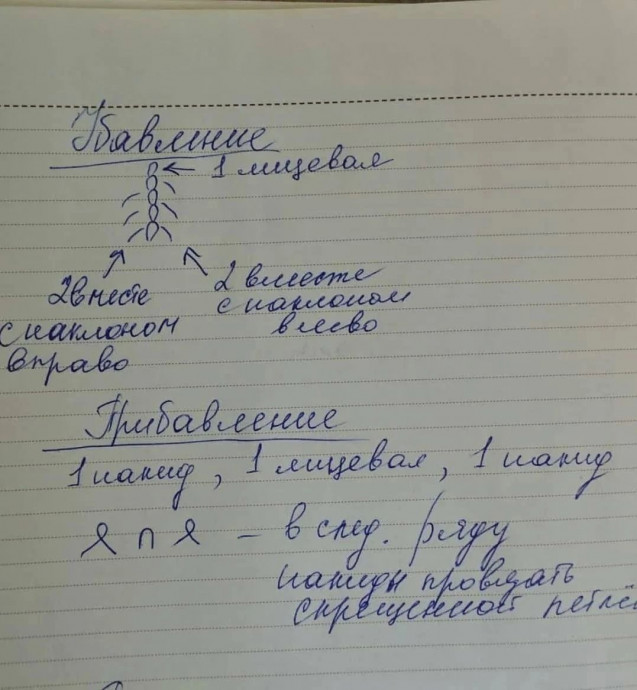 Убавление
1 лицевая
2 вместе
с наклоном
вправо
2 вместе
с наклоном
влево
Прибавление
1 накид, 1 лицевая, 1 накид
– в след. ряду
накиды провязать
скрещенной петлё